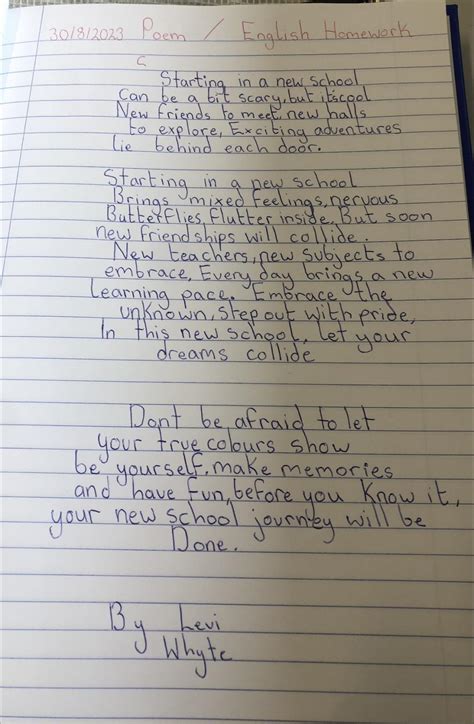 30/8/2023 Poem / English Homework
Starting in a new school
Can be a bit scary, but it's cool
New friends to meet, new halls
to explore, Exciting adventures
lie behind each door.
Starting in a new school
Brings mixed feelings, nervous
Butterflies flutter inside. But soon
new friendships will collide.
New teachers, new subjects to
embrace, Every day brings a new
learning pace. Embrace the
unknown, step out with pride,
In this new school, let your
dreams collide
Dont be afraid to let
your true colours show
be yourself, make memories
and have fun, before you know it,
your new school journey will be
Done.
By Levi
Whyte